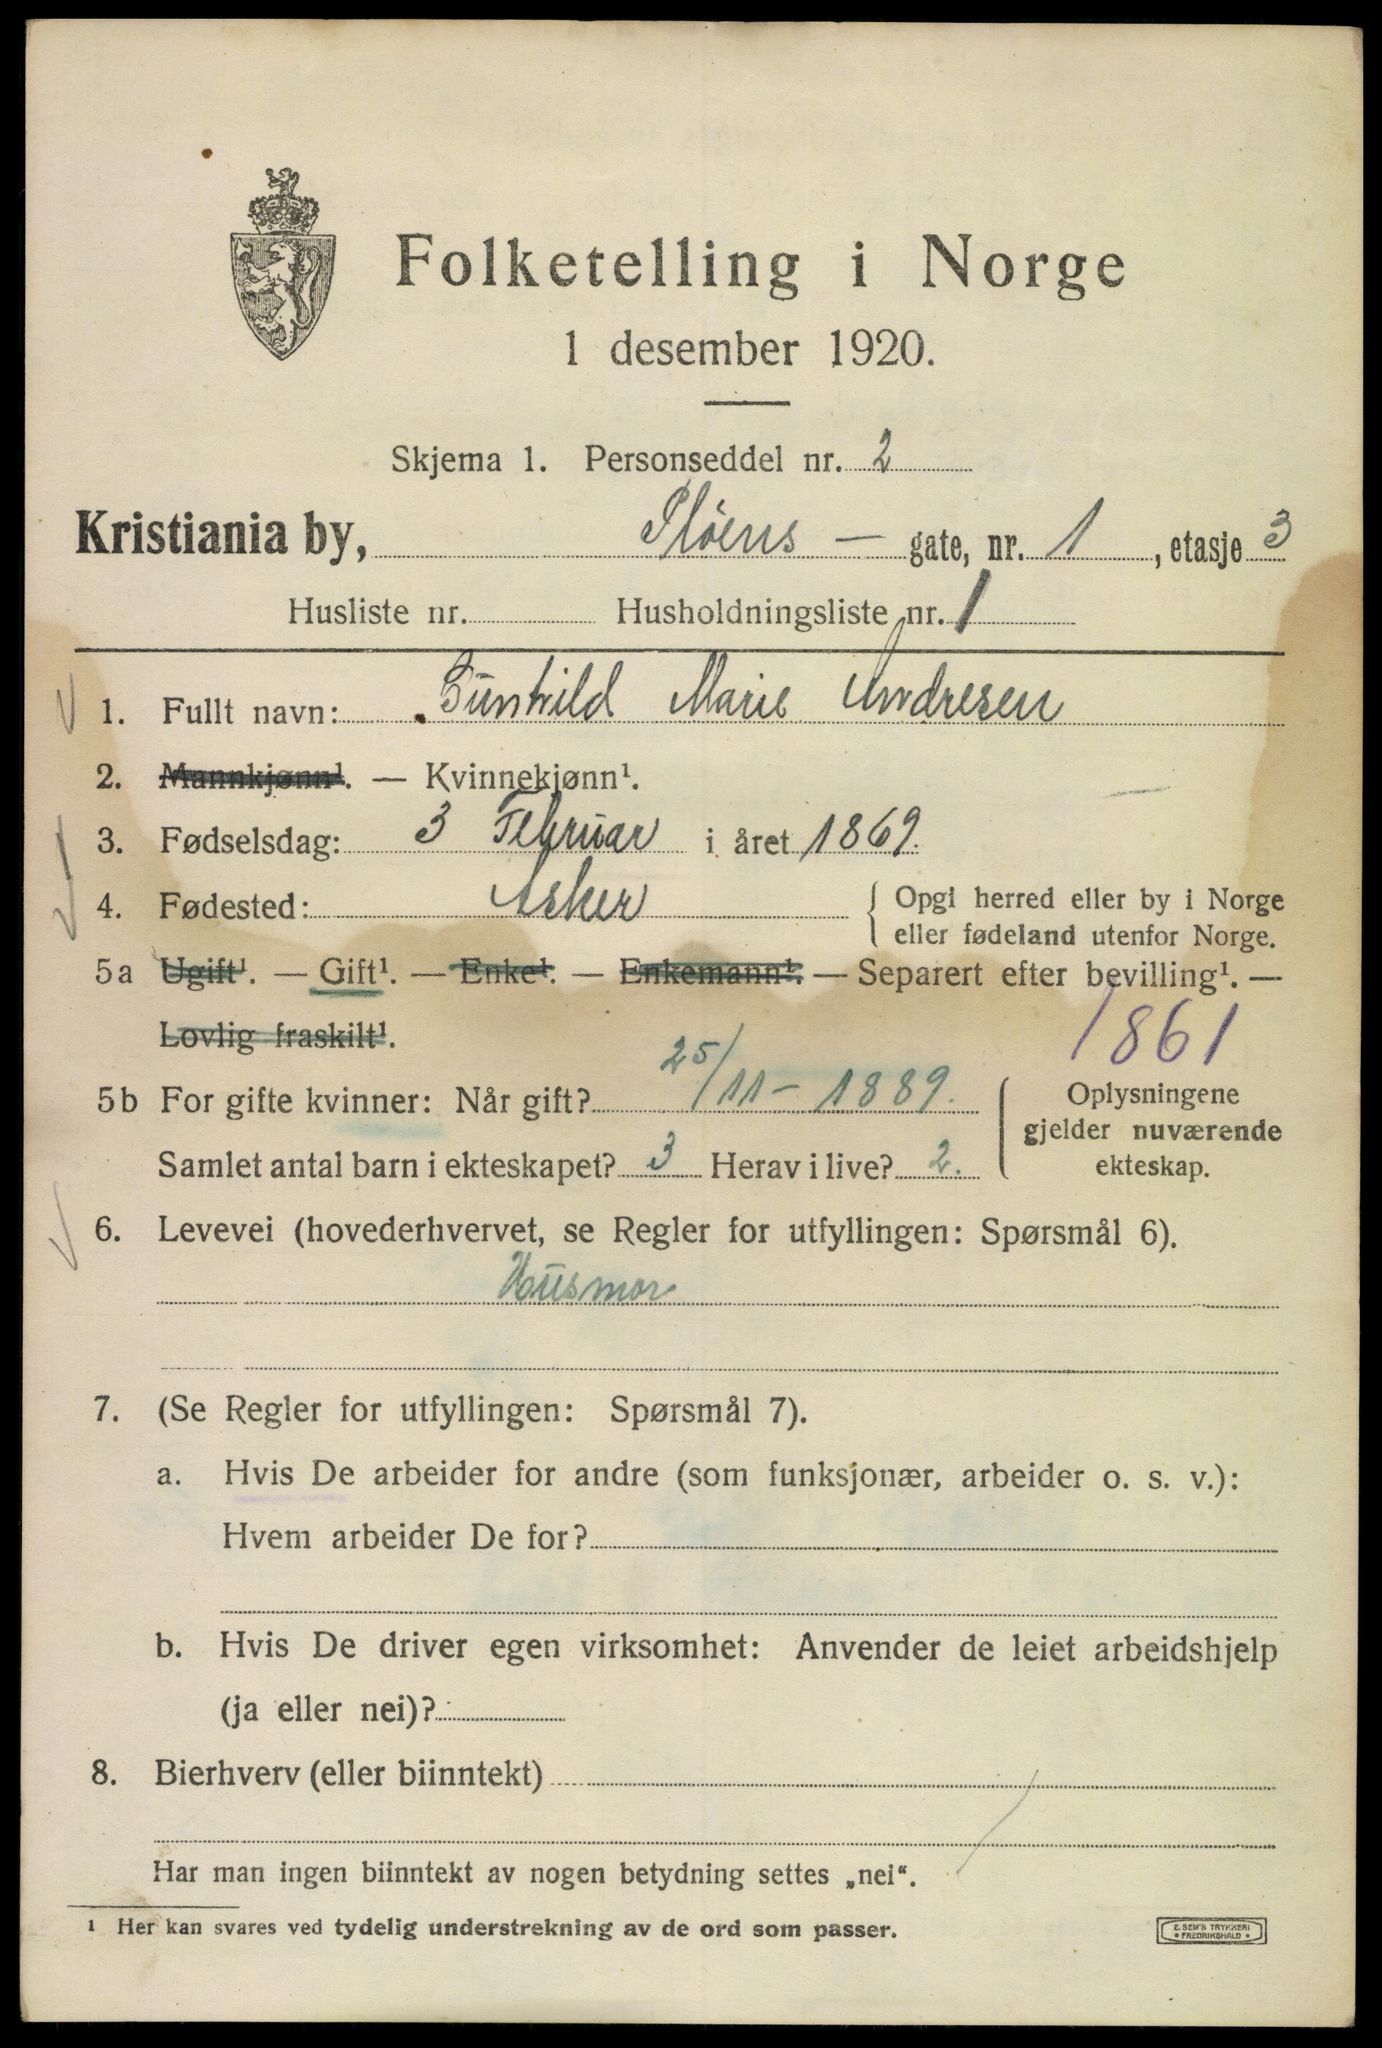 Folketelling i Norge
1 desember 1920.
Skjema 1. Personseddel nr. 2
Kristiania by, Pløens — gate, nr. 1, etasje 3
Husliste nr. Husholdningsliste nr. 1
1. Fullt navn: Gunhild Marie Andresen
2. Mannkjønn¹. — Kvinnekjønn¹.
3. Fødselsdag: 3 Februar i året 1869.
4. Fødested: Asker { Opgi herred eller by i Norge
eller fødeland utenfor Norge.
5a Ugift¹. — Gift¹. — Enke¹. — Enkemann¹. — Separert efter bevilling¹. —
Lovlig fraskilt¹.
1861
5b For gifte kvinner: Når gift? 25/11 - 1889.
Samlet antal barn i ekteskapet? 3 Herav i live? 2.
Oplysningene
gjelder nuværende
ekteskap.
6. Levevei (hovederhvervet, se Regler for utfyllingen: Spørsmål 6).
Husmor
7. (Se Regler for utfyllingen: Spørsmål 7).
a. Hvis De arbeider for andre (som funksjonær, arbeider o. s. v.):
Hvem arbeider De for?
b. Hvis De driver egen virksomhet: Anvender de leiet arbeidshjelp
(ja eller nei)?
8. Bierhverv (eller biinntekt)
Har man ingen biinntekt av nogen betydning settes „nei“.
¹ Her kan svares ved tydelig understrekning av de ord som passer.
E. SEM'S TRYKKERI
• FREDRIKSHALD •